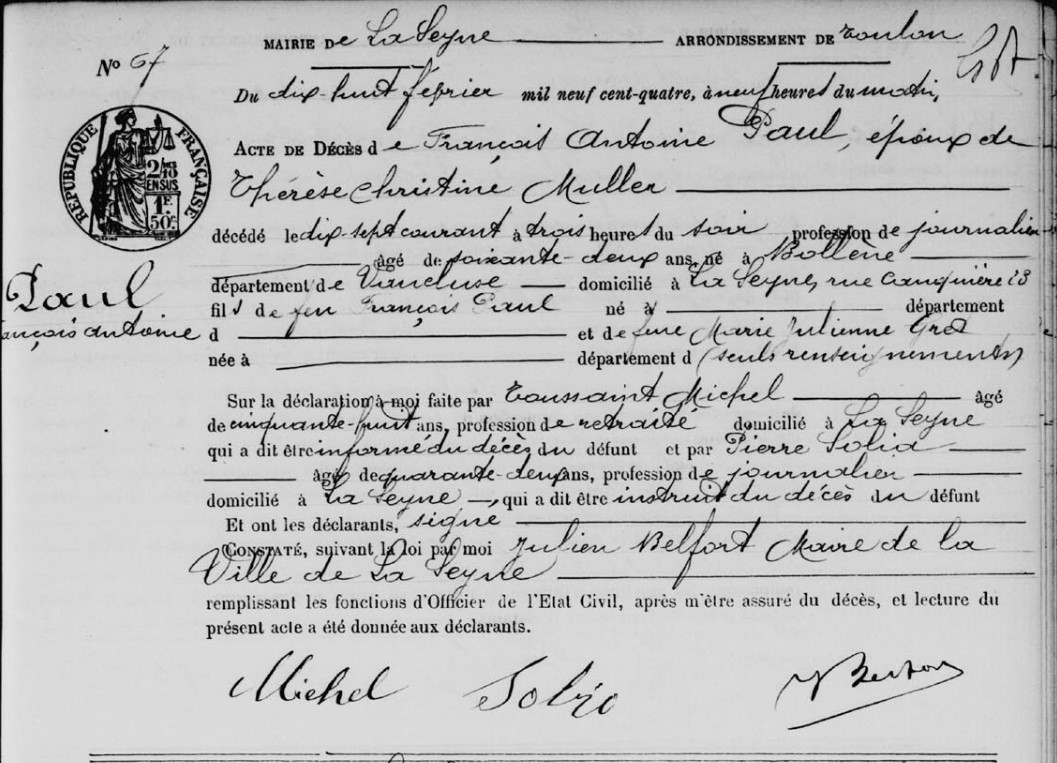 MAIRIE De La Seyne ARRONDISSEMENT DE Toulon
No 67
Du dix huit février mil neuf cent-quatre, à neuf heures du matin,
ACTE DE DÉCÈS de François Antoine Paul, époux de
Thérèse Christine Muller
RÉPUBLIQUE FRANÇAISE
2/10
EN SUS
1F
50c
décédé le dix sept courant à trois heures du soir profession de journalier
âgé de soixante-deux ans, né à Bollène
département de Vaucluse domicilié à La Seyne, rue 13
Paul
François Antoine
fils de feu François Paul né à département
d et de feue Marie Julienne Gras
née à département d (seuls renseignements)
Sur la déclaration à moi faite par Toussaint Michel âgé
de cinquante-huit ans, profession de retraité domicilié à La Seyne
qui a dit être informé du décès du défunt et par Pierre Solia
âgé de quarante-deux ans, profession de journalier
domicilié à La Seyne, qui a dit être instruit du décès du défunt
Et ont les déclarants, signé
CONSTATÉ, suivant la loi par moi Julien Belfort Maire de la
Ville de La Seyne
remplissant les fonctions d'Officier de l'Etat Civil, après m'être assuré du décès, et lecture du
présent acte a été donnée aux déclarants.
Michel